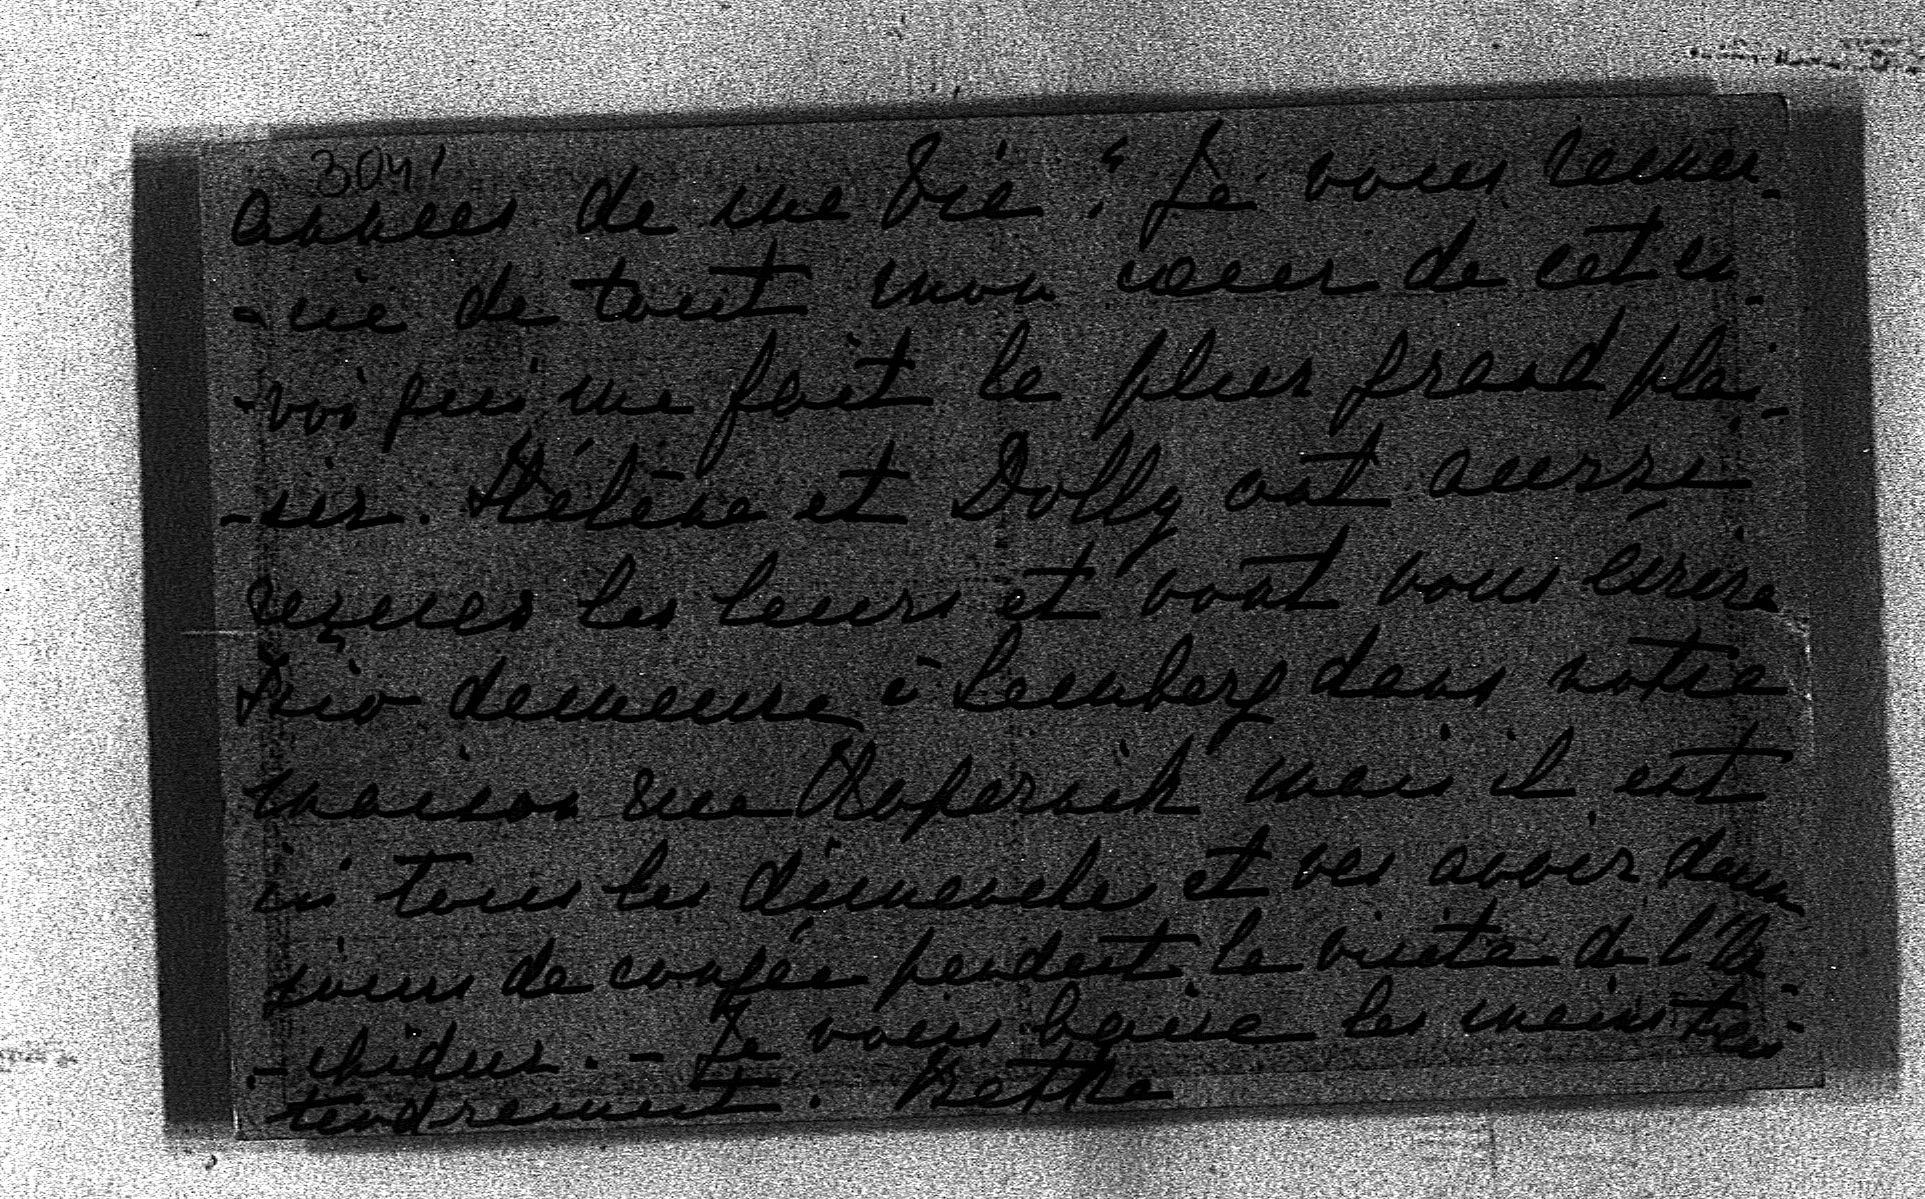 3041
années de ma vie! Je vous remer-
-cie de tout mon cœur de cet en-
-voi qui me fait le plus grand plai-
-sir. Hélène et Dolly ont aussi
reçues les leurs et vont vous écrire
demeure à Lemberg dans notre
maison rue Kopernik mais il est
ici tous les dimanches et va avoir deux
jours de congé pendant la visite de l'Ar-
-chiduc. - Je vous baise les mains très
tendrement.